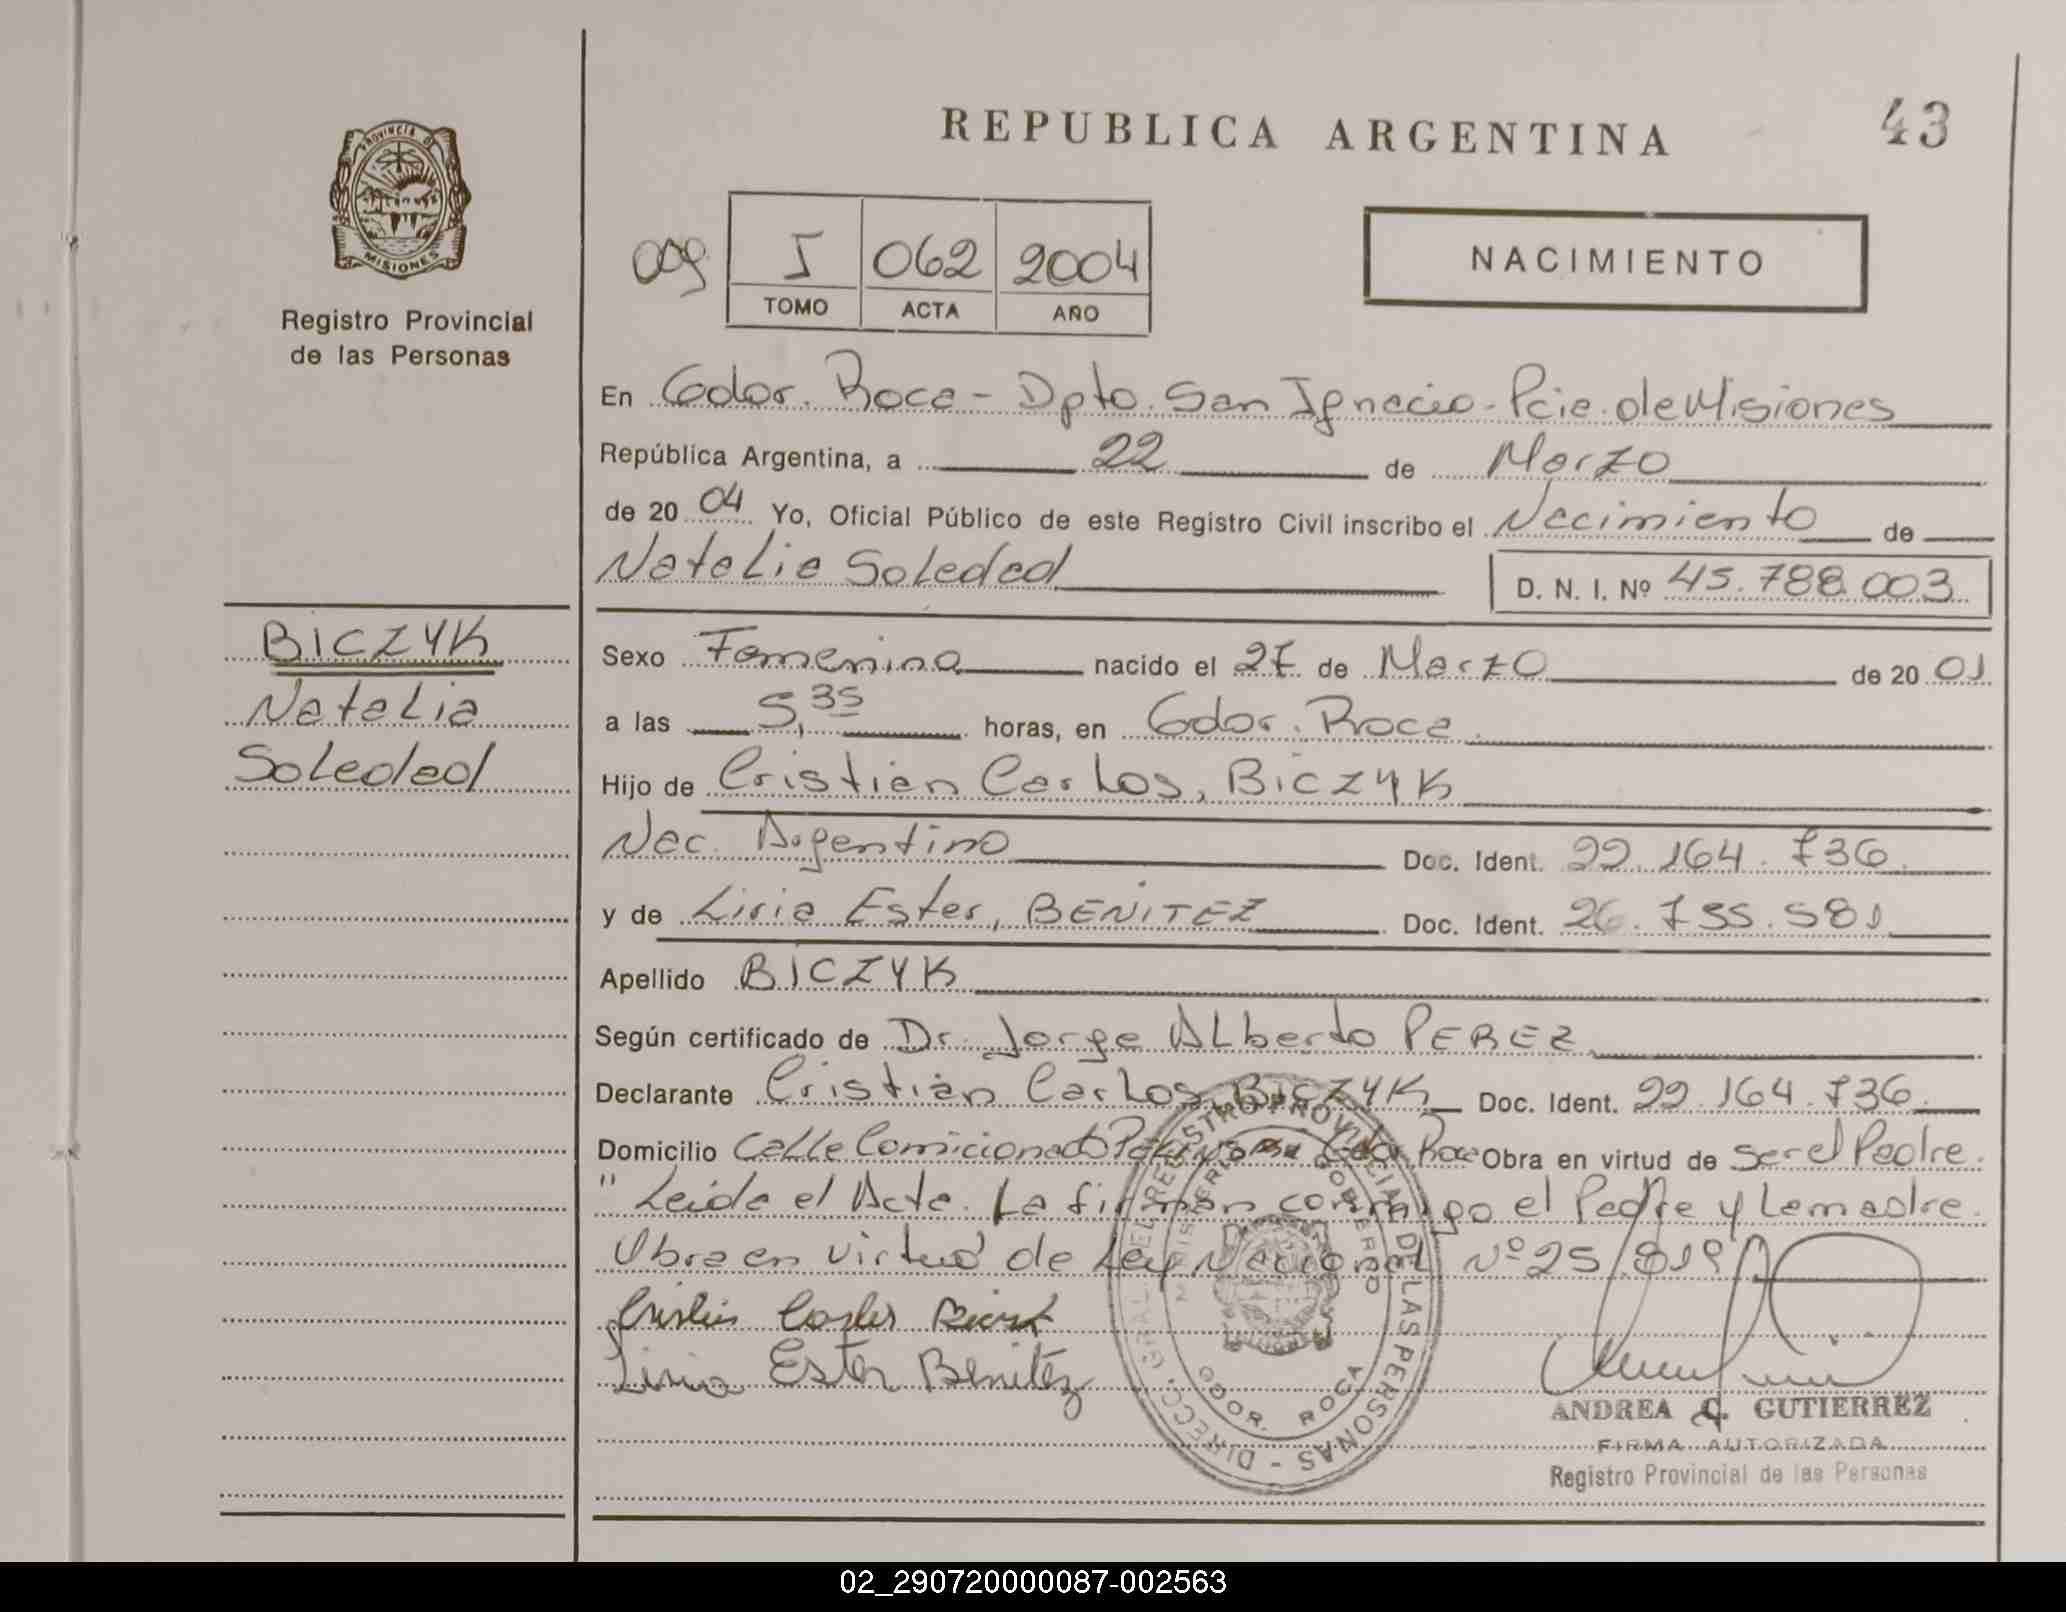 REPUBLICA ARGENTINA
43
PROVINCIA DE MISIONES
Registro Provincial
de las Personas
009
I 062 2004
TOMO ACTA AÑO
NACIMIENTO
En Gdor. Roca - Dpto. San Ignacio - Pcia. de Misiones
República Argentina, a 22 de Marzo
de 20 04 Yo, Oficial Público de este Registro Civil inscribo el Nacimiento de
Natalia Soledad D. N. I. Nº 45.788.003
BICZYK
Natalia
Soledad
Sexo Femenino nacido el 27 de Marzo de 20 01
a las 5,35 horas, en Gdor. Roca
Hijo de Cristian Carlos, BICZYK
Nac. Argentino Doc. Ident. 22.164.736
y de Liria Ester, BENITEZ Doc. Ident. 26.735.581
Apellido BICZYK
Según certificado de Dr. Jorge Alberto PEREZ
Declarante Cristian Carlos, BICZYK Doc. Ident. 22.164.736
Domicilio Calle Comicionado Gdor Roca Obra en virtud de ser el Padre.
"Leida el Acta. La firman conmigo el Padre y la madre.
Obra en virtud de Ley Nacional Nº 25.819
Cristian Carlos
Liria Ester Benitez
DIRECC. GRAL. DEL REGISTRO PROVINCIAL DE LAS PERSONAS
MINISTERIO GOBIERNO
GDOR. ROCA
ANDREA C. GUTIERREZ
FIRMA AUTORIZADA
Registro Provincial de las Personas
02_290720000087-002563